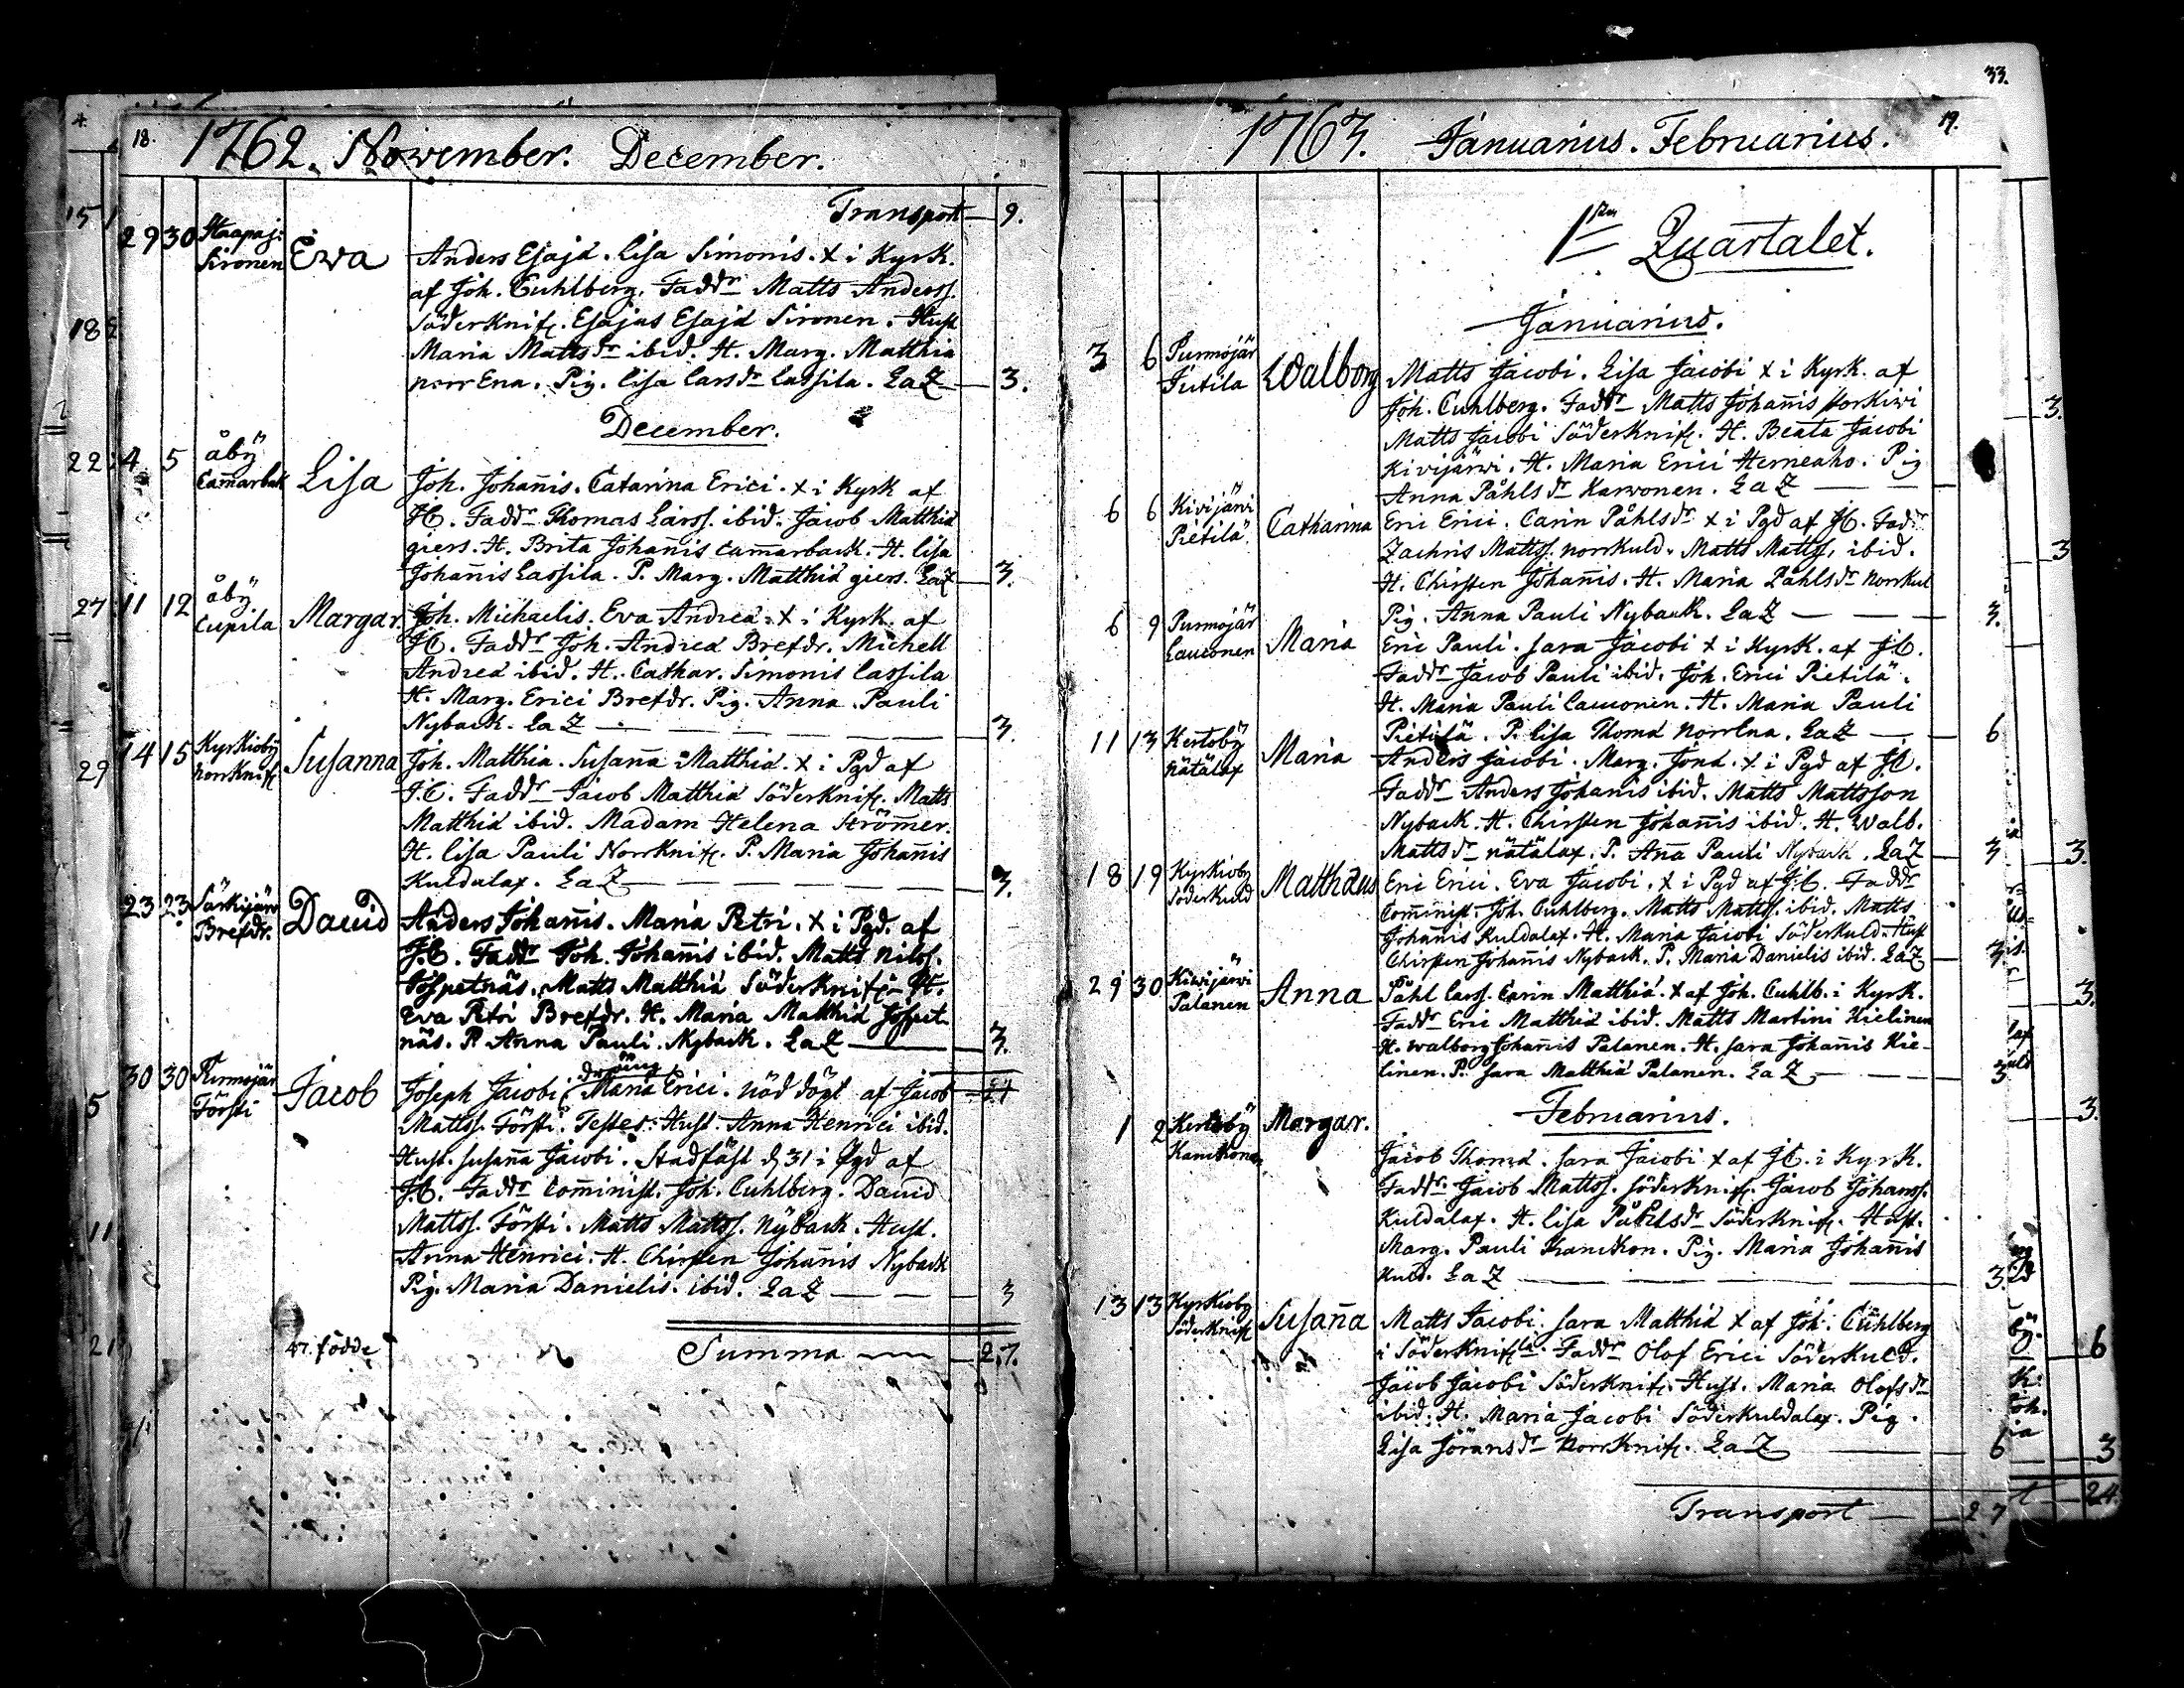 18.
1762. November. December.
Transport 9.
29 30 Haapaj: Sironen Ewa
Anders Esajæ. Lisa Simonis. x i Kyrk.
af Joh. Cuhlberg. Faddr Matts Anderss.
Söderknif. Esajas Esajæ Sironen. Hust
Maria Mattsdr ibid. H. Marg. Matthiæ
norrEna. Pig. Lisa Larsdr Lassila. LaZ 3.
December.
4 5 åbÿ Cam̄arbak Lisa
Joh. Johan̄is. Catarina Erici. x i Kyrk af
JC. Faddr Thomas Larss. ibid. Jacob Matthiæ
giers. H. Brita Johan̄is Cam̄arback. H. Lisa
Johan̄is Lassila. P. Marg. Matthiæ giers. LaZ 3.
11 12 åbÿ Cupila Margar.
Joh. Michaelis. Eva Andreæ. x i Kyrk. af
JC. Faddr Joh. Andreæ Brefdr. Michell
Andreæ ibid. H. Cathar. Simonis Lassila
H. Marg. Erici Brefdr. Pig. Anna Pauli
Nyback. LaZ 3.
14 15 Kyrkiobÿ Norrknif Susanna
Joh. Matthiæ. Susan̄a Matthiæ. x i Pgd af
J.C. Faddr Jacob Matthiæ Söderknif. Matts
Matthiæ ibid. Madam Helena Ström̄er.
H. Lisa Pauli Norrknif. P. Maria Johan̄is
Kuldalax. LaZ 3.
23 23 Särkijärv Brefdr. David
Anders Johan̄is. Maria Petri. x i Pgd. af
J.C. Faddr Joh. Johan̄is ibid. Matts Nilss.
Matts Matthiæ Söderknif. H.
Eva Petri Brefdr. H. Maria Matthiæ
näs. P. Anna Pauli. Nyback. LaZ 3.
30 30 Purmojär Försti Jacob
dräng
Joseph Jacobi. Maria Erici. nöd döpt af Jacob
Mattss. Försti. Testes: Hust. Anna Henrici ibid.
Hust. Susan̄a Jacobi. Stadfäst d 31 i Pgd af
J.C. Faddr Com̄inist. Joh. Cuhlberg. David
Mattss. Försti. Matts Mattss. Nÿback. Hust.
Anna Henrici. H. Chirsten Johan̄is Nyback
Pig. Maria Danielis. ibid. LaZ 3
47. födde
Summa 27.
33.
19.
1763. Januarius. Februarius.
1sta Quartalet.
Januarius.
3 6 Purmojär Jutila Walborg
Matts Jacobi. Lisa Jacobi x i Kyrk. af
Joh. Cuhlberg. Faddr Matts Johan̄is
Matts Jacobi Söderknif. H. Beata Jacobi
Kivijärvi. H. Maria Erici Herneaho. Pig
Anna Påhlsdr Karvonen. LaZ
6 6 Kivijärvi Pietilä Catharina
Eric Erici. Carin Påhlsdr x i Pgd af JC. Faddr
Zachris Mattss. norrkuld. Matts Mattss, ibid.
H. Chirsten Johan̄is. H. Maria Påhlsdr norrkul
Pig. Anna Pauli Nyback. LaZ 3.
6 9 Purmojär Lauronen Maria
Eric Pauli. Sara Jacobi x i Kyrk. af JC.
Faddr Jacob Pauli ibid. Joh. Erici Pietilä.
H. Maria Pauli Lauronen. H. Maria Pauli
Pietilä. P. Lisa Thomæ norrEna. LaZ 6
11 13 Kertobÿ nätälax Maria
Anders Jacobi. Marg. Jonæ. x i Pgd af J.C.
Faddr Anders Johan̄is ibid. Matts Mattsson
Nyback. H. Chirsten Johan̄is ibid. H. Walb.
Mattsdr nätälax. P. An̄a Pauli Nyback. LaZ 3
18 19 Kyrkioby Söderkuld Matthæus
Eric Erici. Eva Jacobi. x i Pgd af J.C. Faddr
Com̄inist. Joh. Cuhlberg. Matts Mattss. ibid. Matts
Johan̄is Kuldalax. H. Maria Jacobi Söderkuld. Hust
Chirsten Johan̄is Nyback. P. Maria Danielis ibid. LaZ 3
29 30 Kivijärvi Palanen Anna
Påhl Larss. Carin Matthiæ. x af Joh. Cuhlb. i Kyrk.
Faddr Eric Matthiæ ibid. Matts Martini Kielinen
H. Walborg Johan̄is Palanen. H. Sara Johan̄is Kie-
linen. P. Sara Matthiæ Palanen. LaZ 3
Februarius.
1 2 Kertobÿ Margar.
Jacob Thomæ. Sara Jacobi x af JC. i Kyrk.
Faddr. Jacob Mattss. Söderknif. Jacob Johanss.
Kuldalax. H. Lisa Påhlsdr Söderknif. Hust.
Marg. Pauli Pig. Maria Johan̄is
Kuld. LaZ 3.
13 13 Kyrkioby Söderknif Susan̄a
Matts Jacobi. Sara Matthiæ x af Joh. Cuhlberg
i Söderknif. Faddr Olof Erici Söderkuld.
Jacob Jacobi Söderknif. Hust. Maria Olofsdr
ibid. H. Maria Jacobi Söderkuldalax. Pig.
Lisa Jöransdr Norrknif. LaZ 6
Transport 27